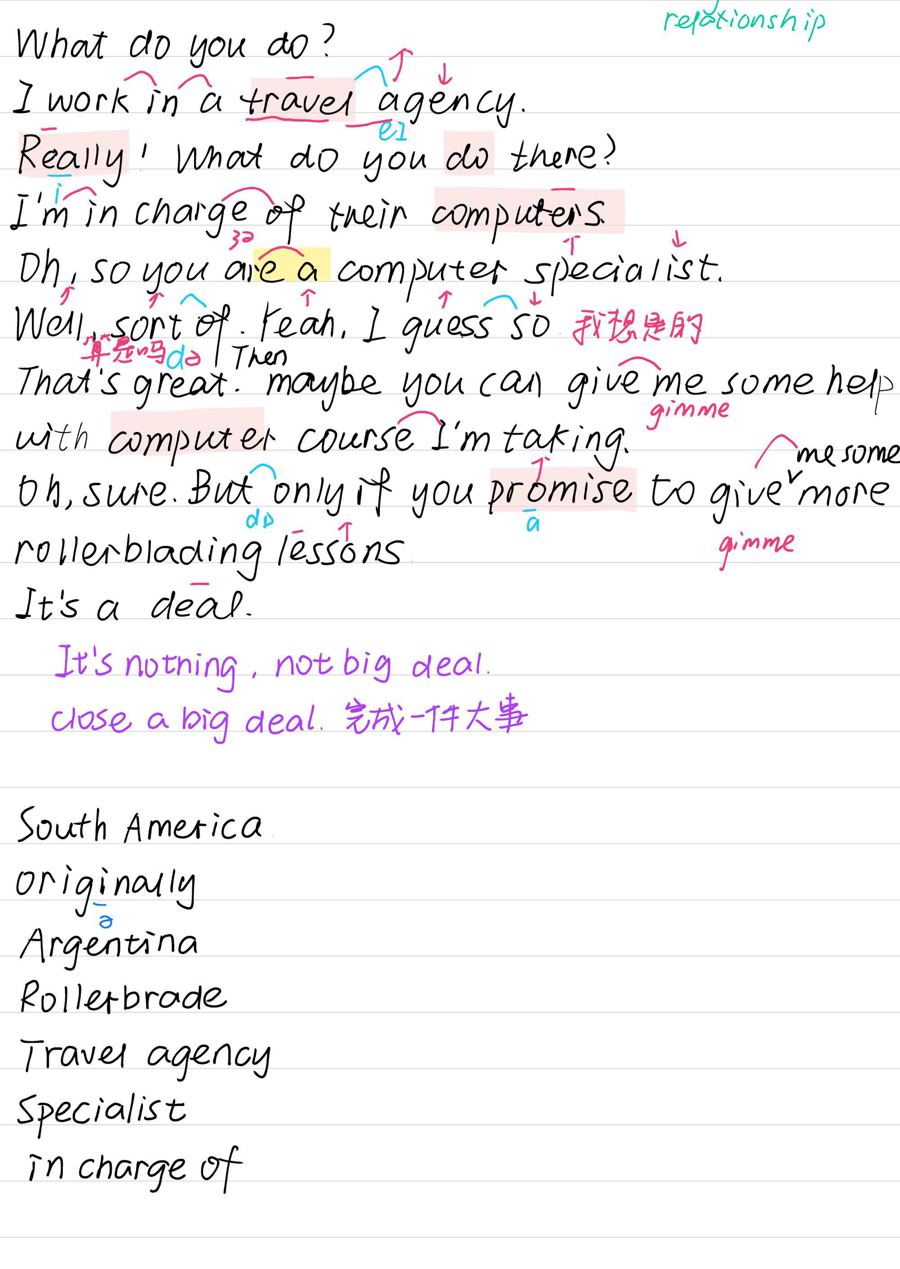 relationship
What do you do?
I work in a travel agency.
eI
Really! What do you do there?
i
I'm in charge of their computers.
ʒə
Oh, so you are a computer specialist.
Well, sort of. Yeah, I guess so 我想是的
算是吗 də Then
That's great. maybe you can give me some help
gimme
with computer course I'm taking.
me some
Oh, sure. But only if you promise to give more
a
gimme
rollerblading lessons
It's a deal.
It's nothing, not big deal.
close a big deal. 完成一件大事
South America
originally
ə
Argentina
Rollerbrade
Travel agency
Specialist
in charge of